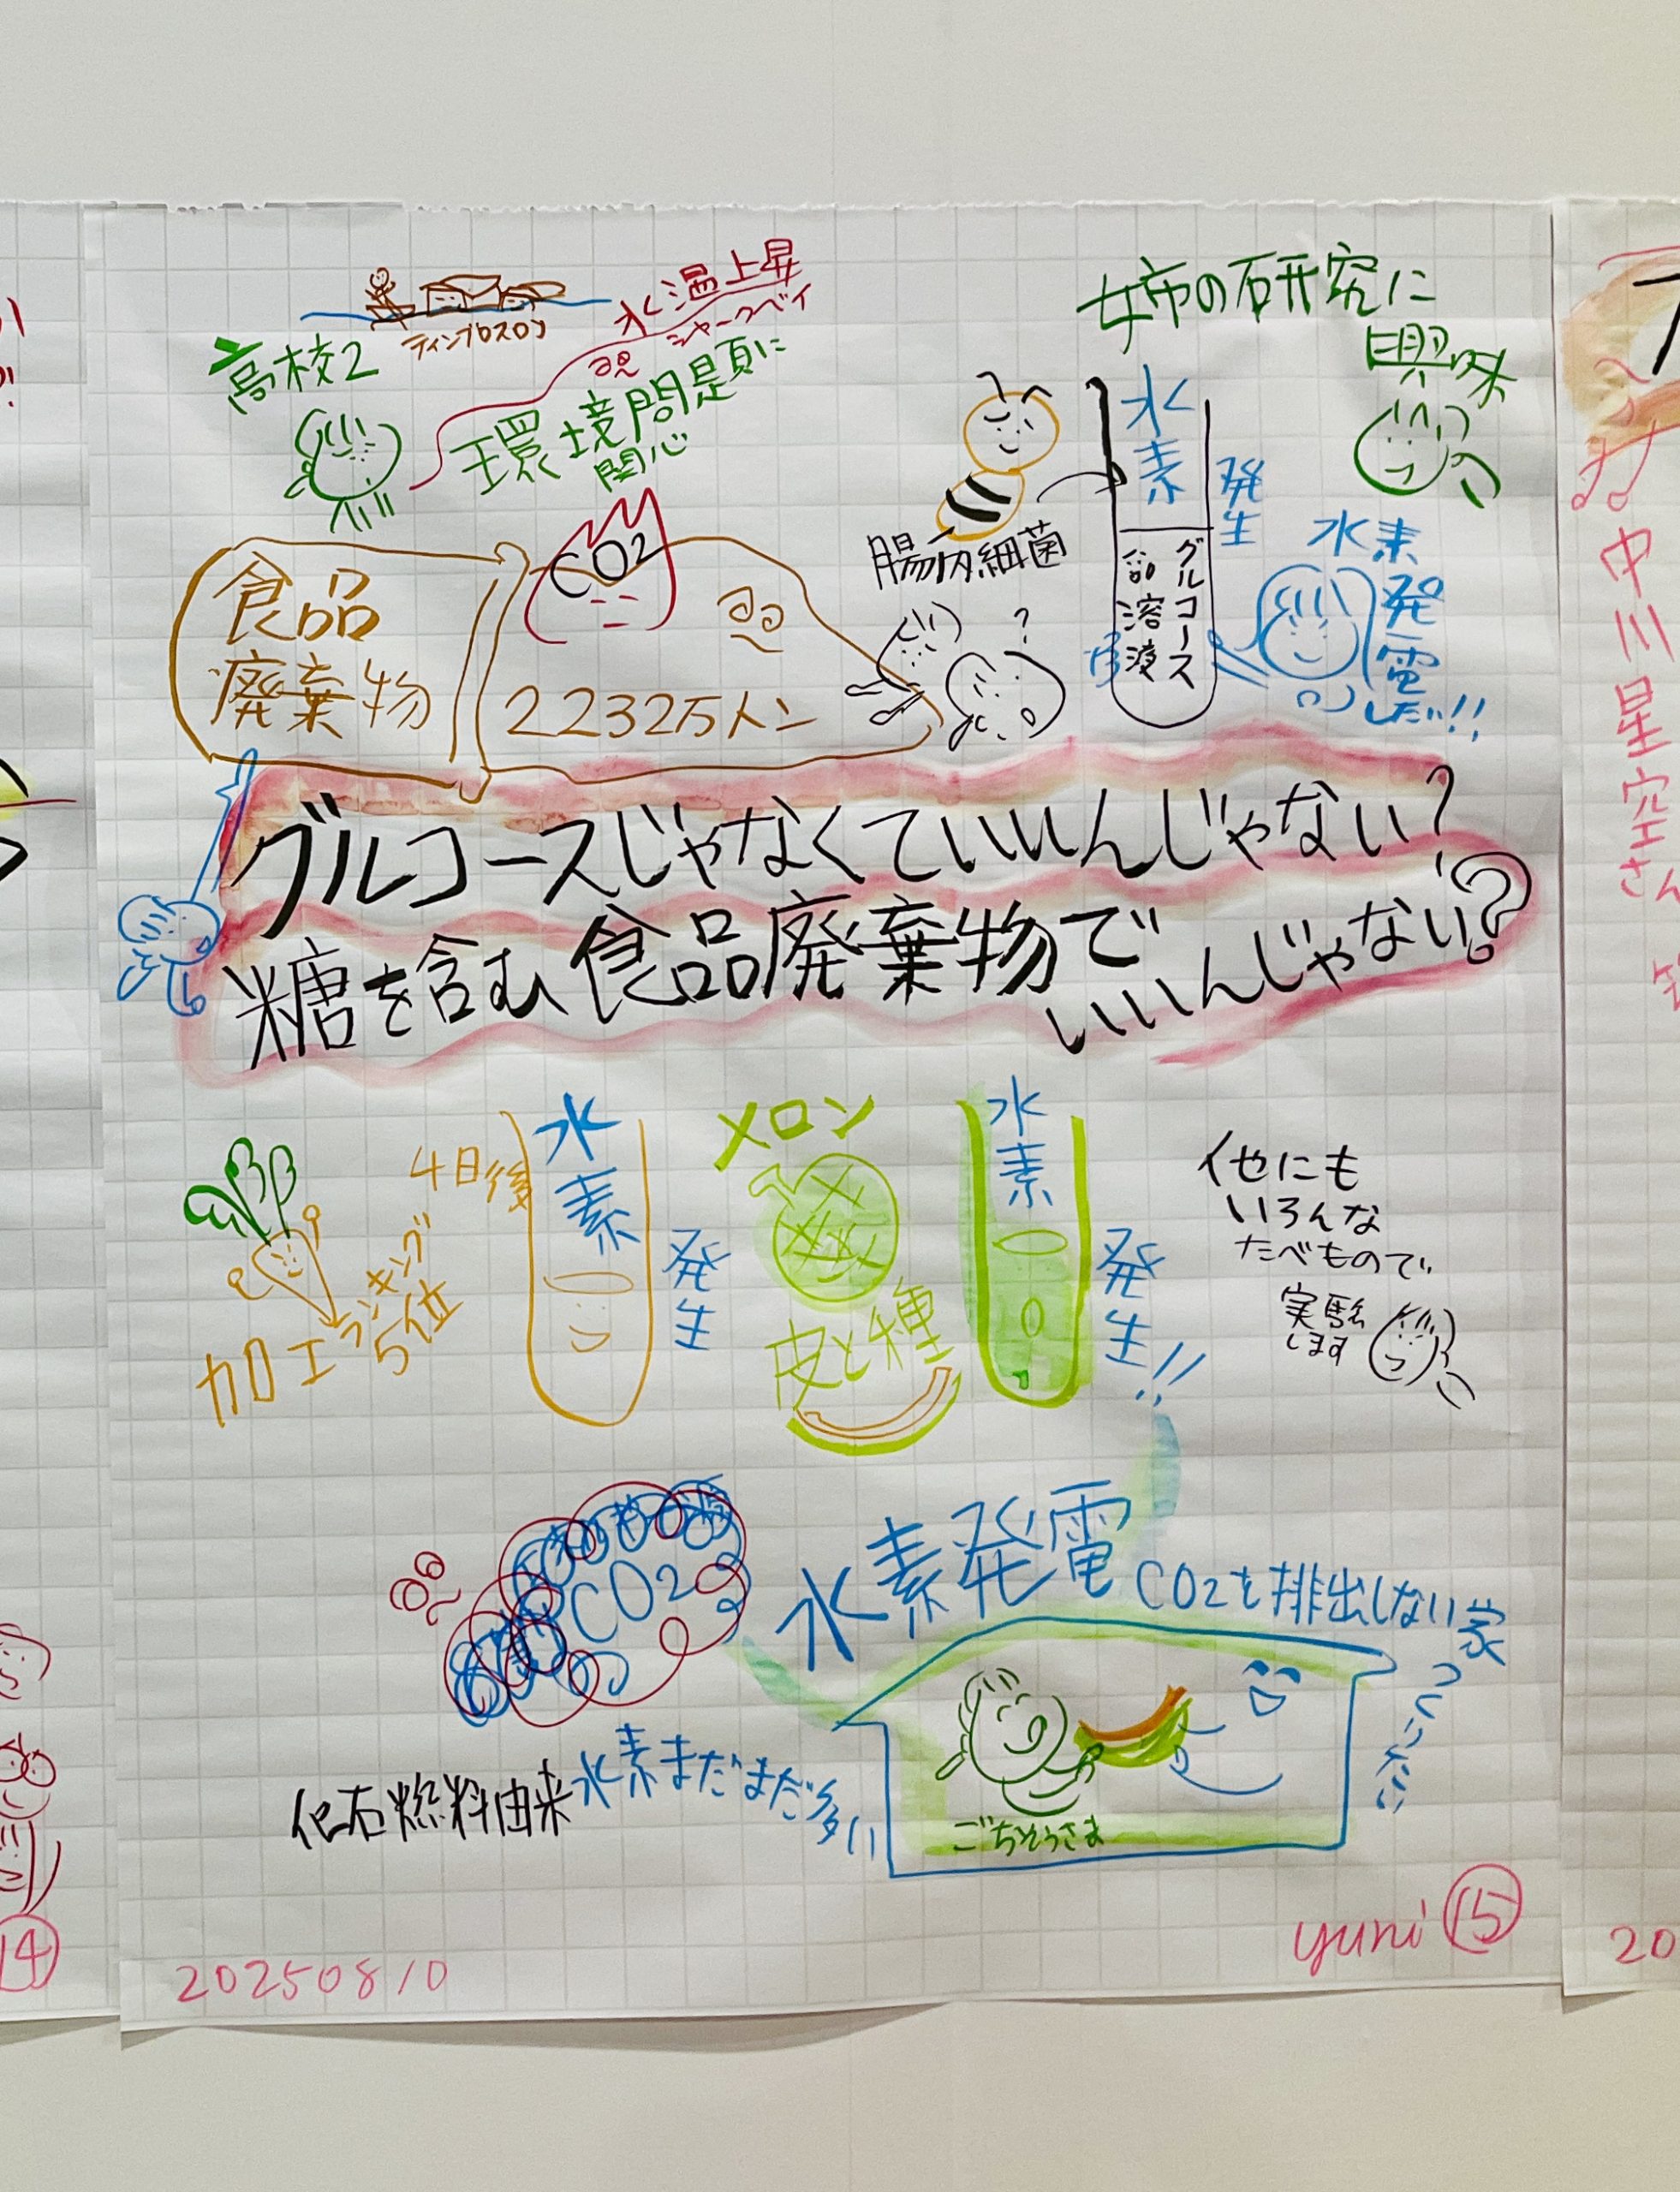 ティンプロスロン
高校2
水温上昇
シャークベイ
環境問題に
関心
食品
廃棄物
CO2
2232万トン
姉の研究に
興味
腸内細菌
?
水素
発生
グルコース
溶液
水素
発電
したい!!
グルコースじゃなくていいんじゃない?
糖を含む食品廃棄物で
いいんじゃない?
4日後
水素
発生
加工ランキング
5位
メロン
皮と種
水素
発生!!
他にも
いろんな
たべもので
実験
します
CO2
化石燃料由来水素まだまだ多い
水素発電
CO2を排出しない家
つくりたい
ごちそうさま
20250810
yuni ⑮
⑭
中川星空さん
20